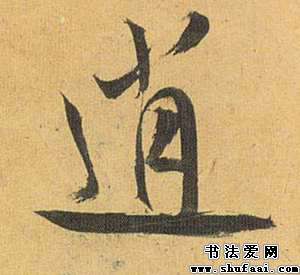 逍
书法爱网
www.shufaai.com